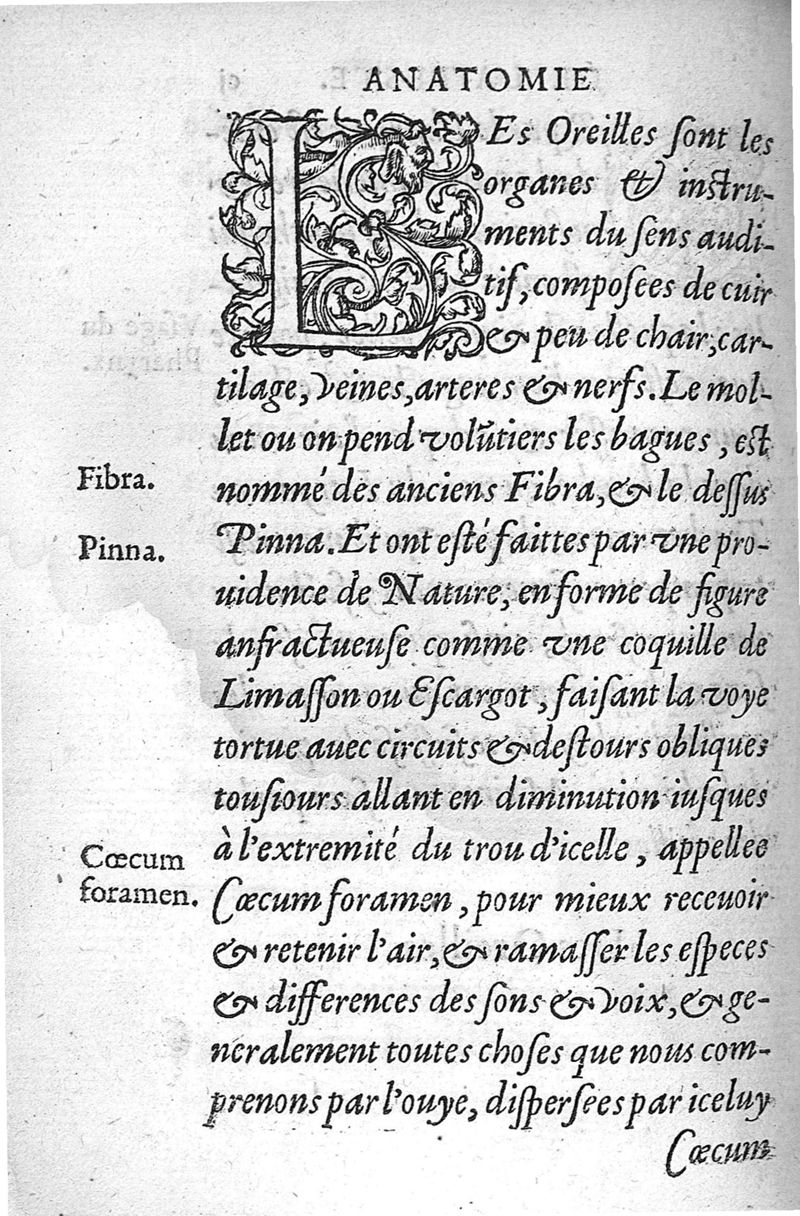 ANATOMIE
LEs Oreilles sont les
organes & instru-
ments du sens audi-
tif, composees de cuir
& peu de chair, car-
tilage, veines, arteres & nerfs. Le mol-
let ou on pend volũtiers les bagues, est
Fibra.
nommé des anciens Fibra, & le dessus
Pinna.
Pinna. Et ont esté faittes par vne pro-
uidence de Nature, en forme de figure
anfractueuse comme vne coquille de
Limasson ou Escargot, faisant la voye
tortue auec circuits & destours obliques
tousiours allant en diminution iusques
Cœcum
à l'extremité du trou d'icelle, appellee
foramen.
Cœcum foramen, pour mieux receuoir
& retenir l'air, & ramasser les especes
& differences des sons & voix, & ge-
neralement toutes choses que nous com-
prenons par l'ouye, dispersees par iceluy
Cœcum